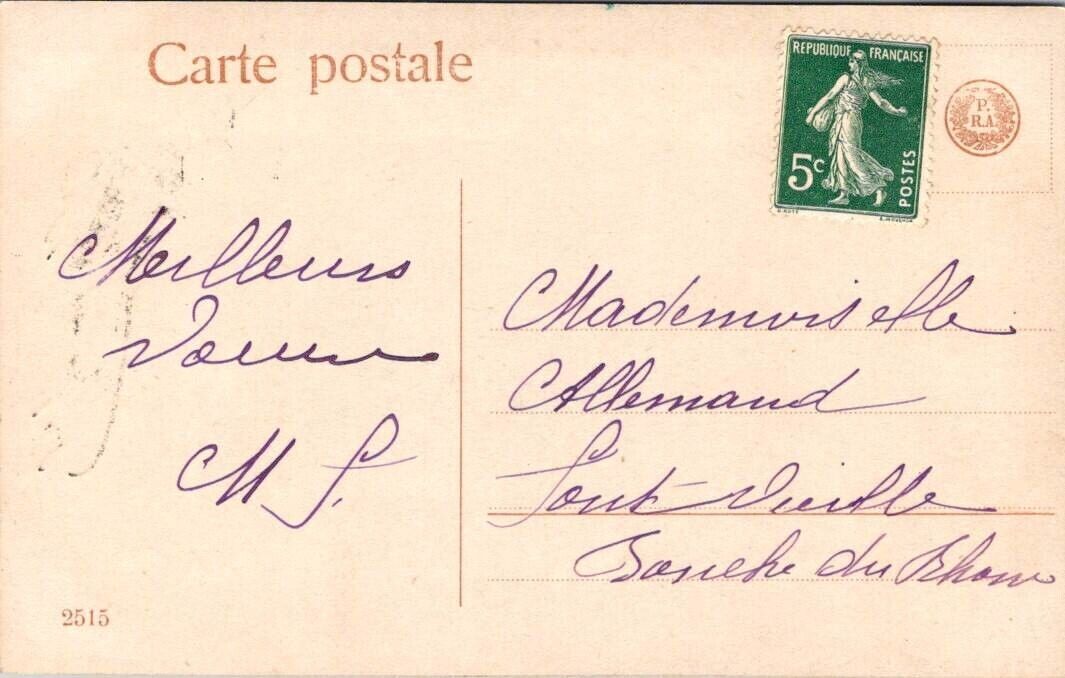 Carte postale
RÉPUBLIQUE FRANÇAISE
5c
POSTES
P.
R.A.
Meilleurs
Voeux
M J.
Mademoiselle
Allemand
Font-Vieille
Bouche du Rhone
2515